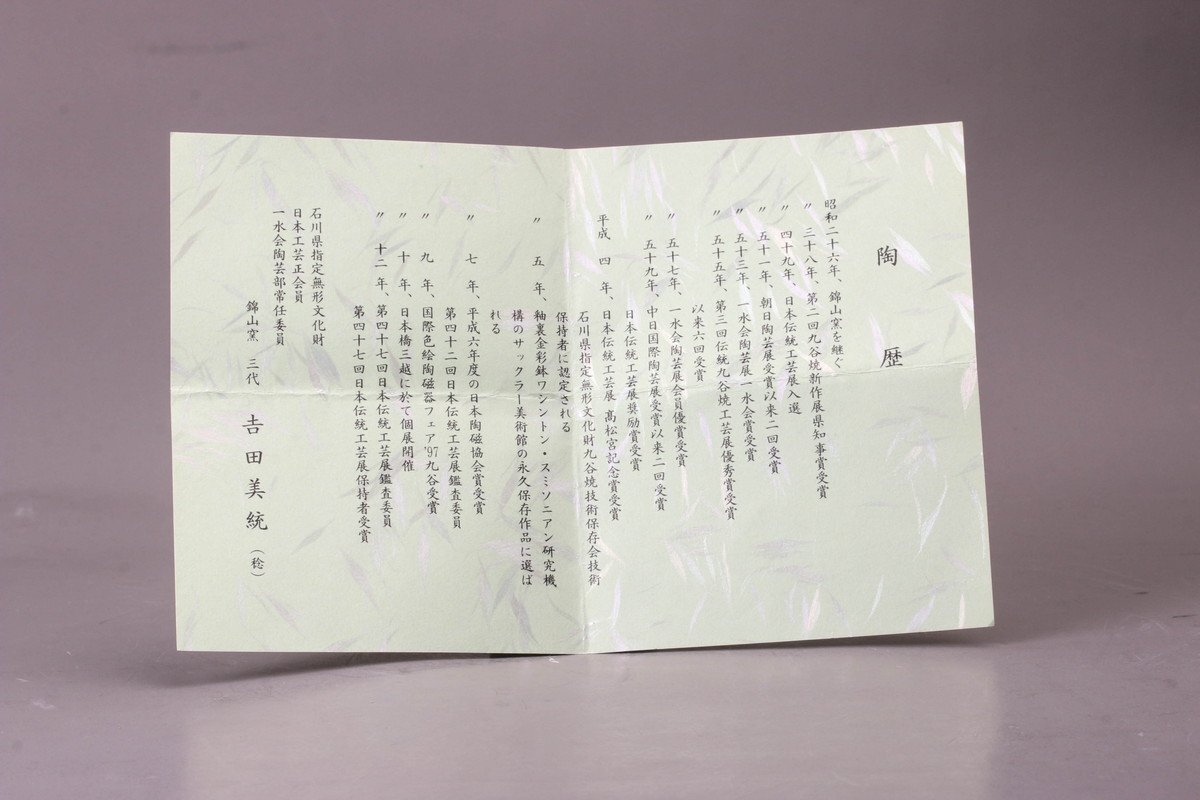 陶歴
昭和二十六年、錦山窯を継ぐ
〃 三十八年、第二回九谷焼新作展県知事賞受賞
〃 四十九年、日本伝統工芸展入選
〃 五十一年、朝日陶芸展受賞以来二回受賞
〃 五十三年、一水会陶芸展一水会賞受賞
〃 五十五年、第三回伝統九谷焼工芸展優秀賞受賞
以来六回受賞
〃 五十七年、一水会陶芸展会員優賞受賞
〃 五十九年、中日国際陶芸展受賞以来二回受賞
日本伝統工芸展奨励賞受賞
平成 四 年、日本伝統工芸展 高松宮記念賞受賞
石川県指定無形文化財九谷焼技術保存会技術
保持者に認定される
〃 五 年、釉裏金彩鉢ワシントン・スミソニアン研究機
構のサックラー美術館の永久保存作品に選ば
れる
〃 七 年、平成六年度の日本陶磁協会賞受賞
第四十二回日本伝統工芸展鑑査委員
〃 九 年、国際色絵陶磁器フェア'97九谷受賞
〃 十 年、日本橋三越に於て個展開催
〃 十二 年、第四十七回日本伝統工芸展鑑査委員
第四十七回日本伝統工芸展保持者受賞
石川県指定無形文化財
日本工芸正会員
一水会陶芸部常任委員
錦山窯 三代 吉田美統(稔)